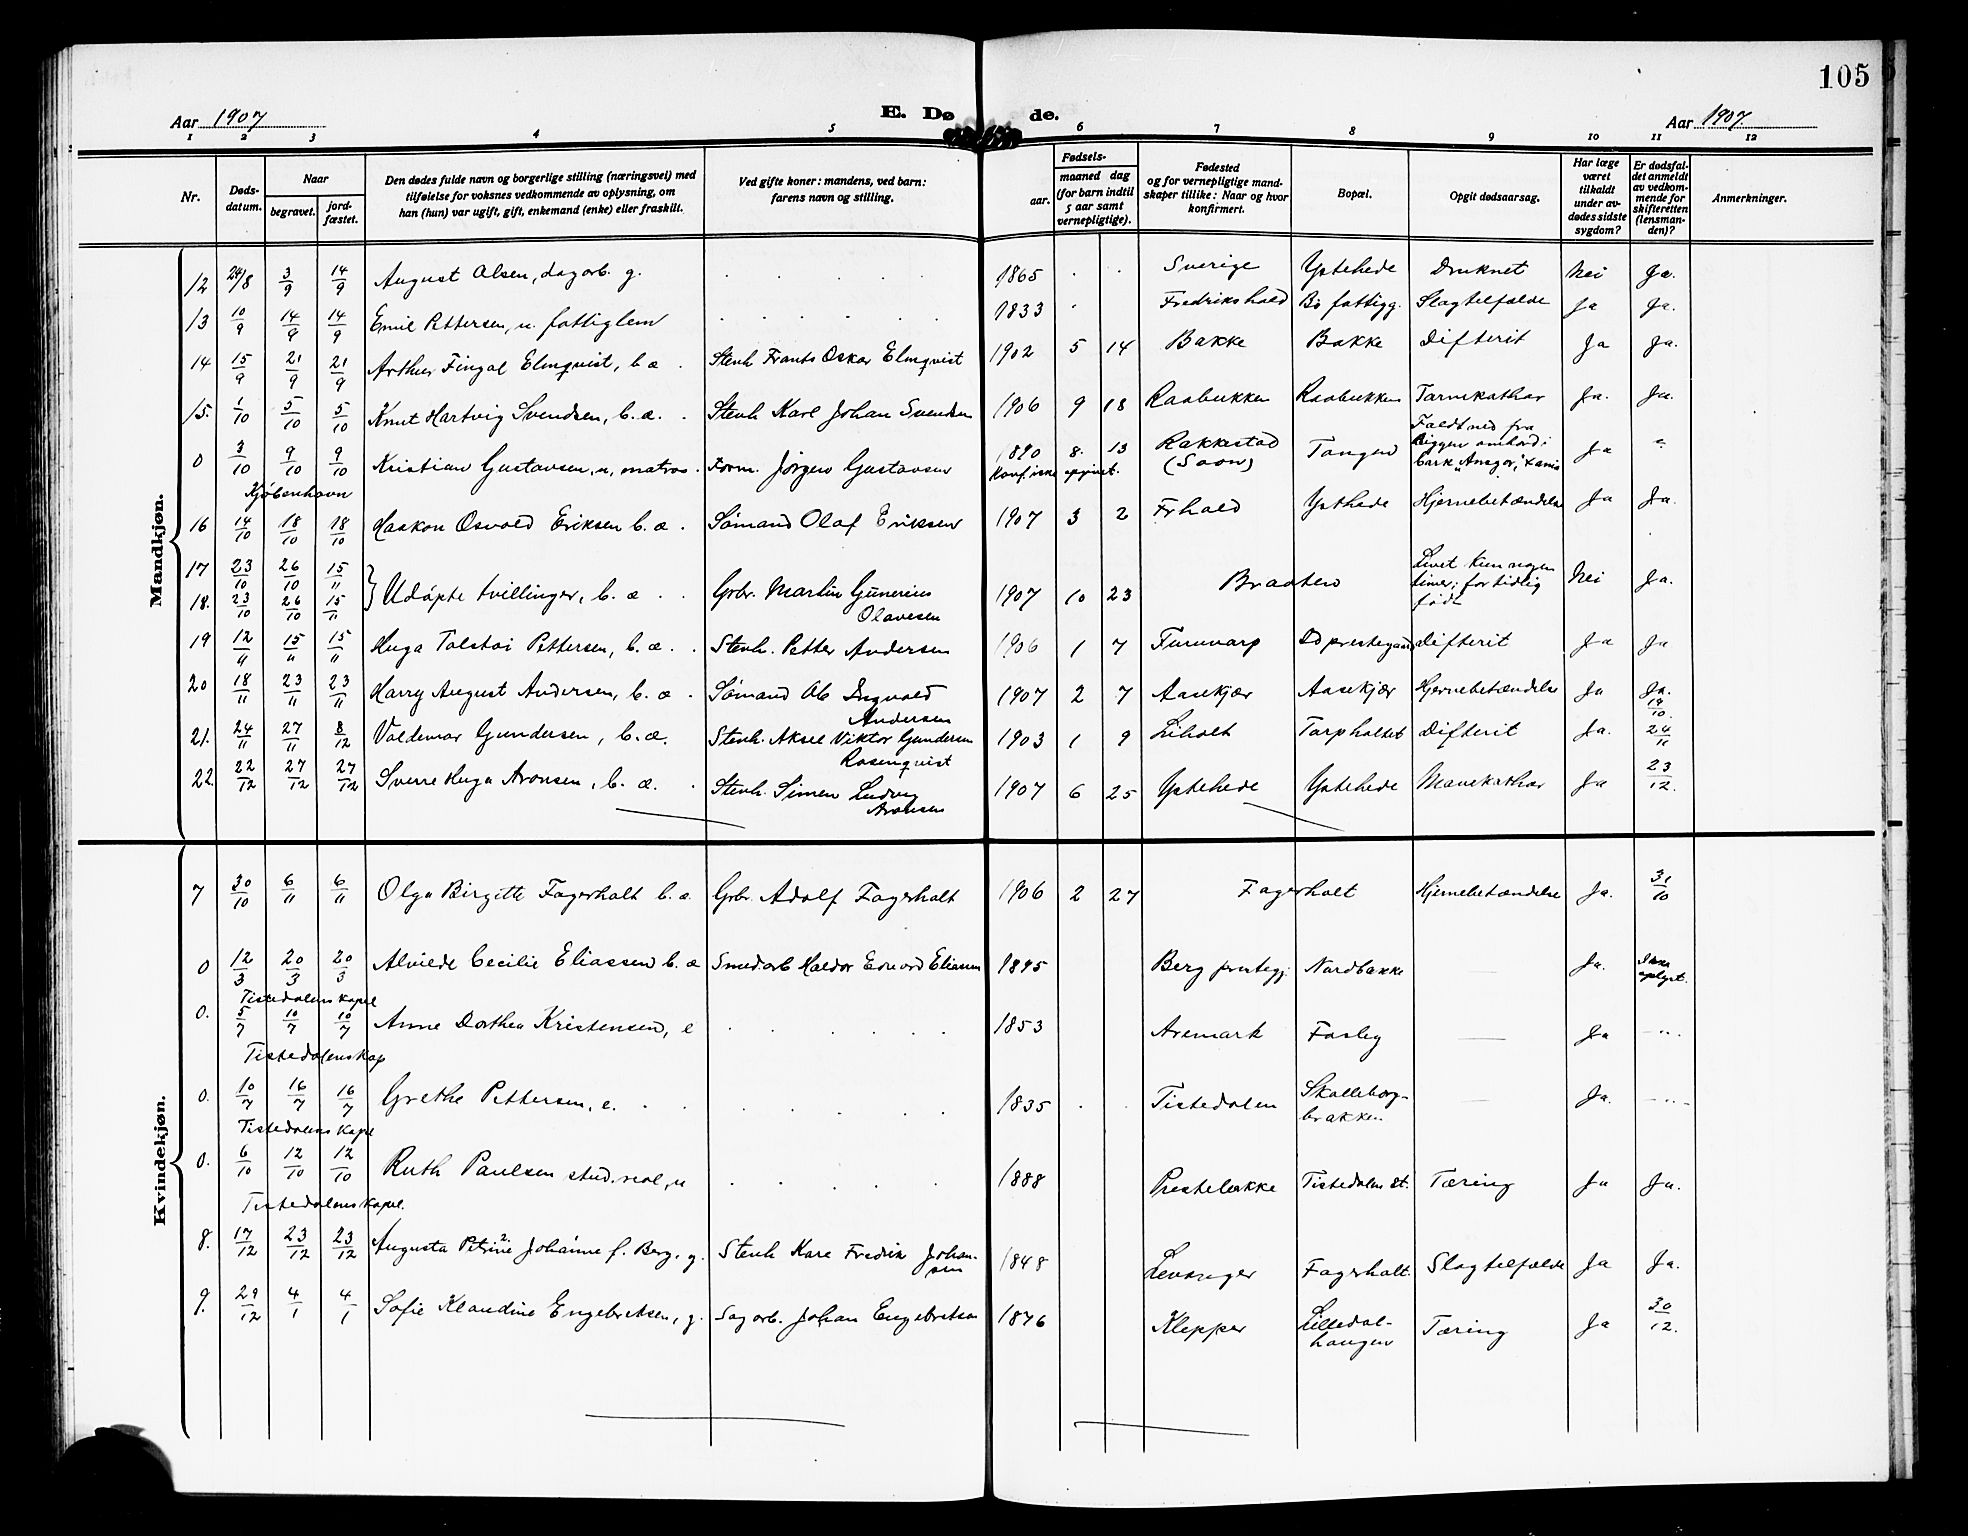 105
Aar 1907
E. Dø de.
Aar 1907.
1 2 3 4 5 6 7 8 9 10 11 12
Nr.
Døds-
datum.
Naar
begravet.
jord-
fæstet.
Den dødes fulde navn og borgerlige stilling (næringsvei) med
tilføielse for voksnes vedkommende av oplysning, om
han (hun) var ugift, gift, enkemand (enke) eller fraskilt.
Ved gifte koner: mandens, ved barn:
farens navn og stilling.
Fødsels-
aar.
maaned dag
(for barn indtil
5 aar samt
vernepligtige).
Fødested
og for vernepligtige mand-
skaper tillike: Naar og hvor
konfirmert.
Bopæl.
Opgit dødsaarsag.
Har læge
været
tilkaldt
under av-
dødes sidste
sygdom?
Er dødsfal-
det anmeldt
av vedkom-
mende for
skifteretten
(lensman-
den)?
Anmerkninger.
Mandkjøn.
12 24/8 3/9 14/9 August Olsen, dagarb. g. 1865 Sverige Ystehede Druknet Nei Ja.
13 10/9 14/9 14/9 Emil Pettersen, u. fattiglem 1833 Fredrikshald Bø fattigg. Slagtilfælde Ja Ja.
14 15/9 21/9 21/9 Arthur Fingal Elmqvist, b. æ. Stenh. Frants Oskar Elmqvist 1902 5 14 Bakke Bakke Difterit Ja Ja.
15. 1/10 5/10 5/10 Knut Hartvig Svendsen, b. æ. Stenh. Karl Johan Svendsen 1906 9 18 Raabukken Raabukken Tarmkathar Ja. Ja.
0 3/10 9/10 9/10 Kristian Gustavsen, u, matros. Form. Jørgen Gustavsen 1890 8. 13 Rakkestad Tangen Faldt ned fra
Kjøbenhavn Konf. ikke opgivet. (Soon) Riggen ombord i Ja "
bark "Ansgar"
16 14/10 18/10 18/10 Haakon Osvald Eriksen b. æ. Sømand Olaf Eriksen 1907 3 2 Frhald Ysthede Hjernebetændelse Ja Ja.
17 23/10 26/10 15/11
18. 23/10 26/10 15/11 } Udøpte tvillinger, b. æ. Grbr. Martin Gunerius 1907 10 23 Braaten Levet kun nogen Nei Ja.
Olavesen timer; for tidlig
født
19 12/11 15/11 15/11 Hugo Tolstoi Pettersen, b. æ. Stenh. Petter Andersen 1906 1 7 Furuvarp Id prestegaard Difterit Ja Ja
20 18/11 23/11 23/11 Harry August Andersen, b. æ. Sømand Ole Ingvald 1907 2 7 Aasekjær Aasekjær Hjernebetændelse Ja Ja.
Andersen 19/10.
21. 24/11 27/11 8/12 Valdemar Gundersen, b. æ. Stenh. Aksel Viktor Gundersen 1903 1 9 Liholt Torpholtet Difterit Ja. 24/11
Rosenqvist
22. 22/12 27/12 27/12 Sverre Hugo Aronsen, b. æ. Stenh. Simen Ludvig 1907 6 25 Ystehede Ystehede Mavekathar Ja 23/12.
Aronsen
Kvindekjøn.
7 30/10 6/11 6/11 Olga Birgitte Fagerholt b. æ. Grbr. Adolf Fagerholt 1906 2 27 Fagerholt Hjernebetændelse Ja. 31/10
0 12/3 20/3 20/3 Alvilde Cecilie Eliassen b. æ Smedarb. Haldor Edvard Eliassen 1895 Berg prestegj. Nordbakke — Ja. Ikke
Tistedalens kapel oplyst.
0. 5/7 10/7 10/7 Anne Dorthea Kristensen, e 1853 Aremark Fosby — Ja — " —
Tistedalens kap
0. 10/7 16/7 16/7 Grethe Pettersen, e. 1835 Tistedalen Skolleborg- — Ja. — " —
Tistedalens Kapel brakken.
0. 6/10 12/10 12/10 Ruth Paulsen stud. real, u 1888 Prestebakke Tistedalen st. Tæring Ja Ja.
Tistedalens Kapel.
8. 17/12 23/12 23/12 Augusta Petrine Johanne f. Berg, g. Stenh. Karl Fredrik Johan- 1848 Levanger Fagerholt. Slagtilfælde Ja Ja.
sen
9. 29/12 4/1 4/1 Sofie Klaudine Engebretsen, g. Sagarb. Johan Engebretsen 1876 Klepper Lilledal- Tæring Ja 30/12.
haugen